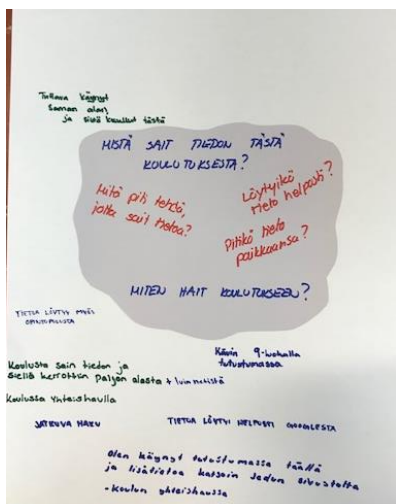 Tuttava käynyt
saman alan,
ja siitä kuullut tästä
MISTÄ SAIT TIEDON TÄSTÄ
KOULUTUKSESTA?
Mitä piti tehdä,
jotta sait tietoa?
Löytyikö
tieto helposti?
Pitikö tieto
paikkaansa?
MITEN HAIT KOULUTUKSEEN?
TIETOA LÖYTYI MYÖS
OPINTOPOLUSTA
Kävin 9-luokalla
tutustumassa
Koulusta sain tiedon ja
siellä kerrottiin paljon alasta + luin netistä
Koulussa Yhteishaulla
JATKUVA HAKU
TIETOA LÖYTYI HELPOSTI GOOGLESTA
Olen käynyt tutustumassa täällä
ja lisätietoa katsoin Sedun sivustolta
- Koulun yhteishaussa